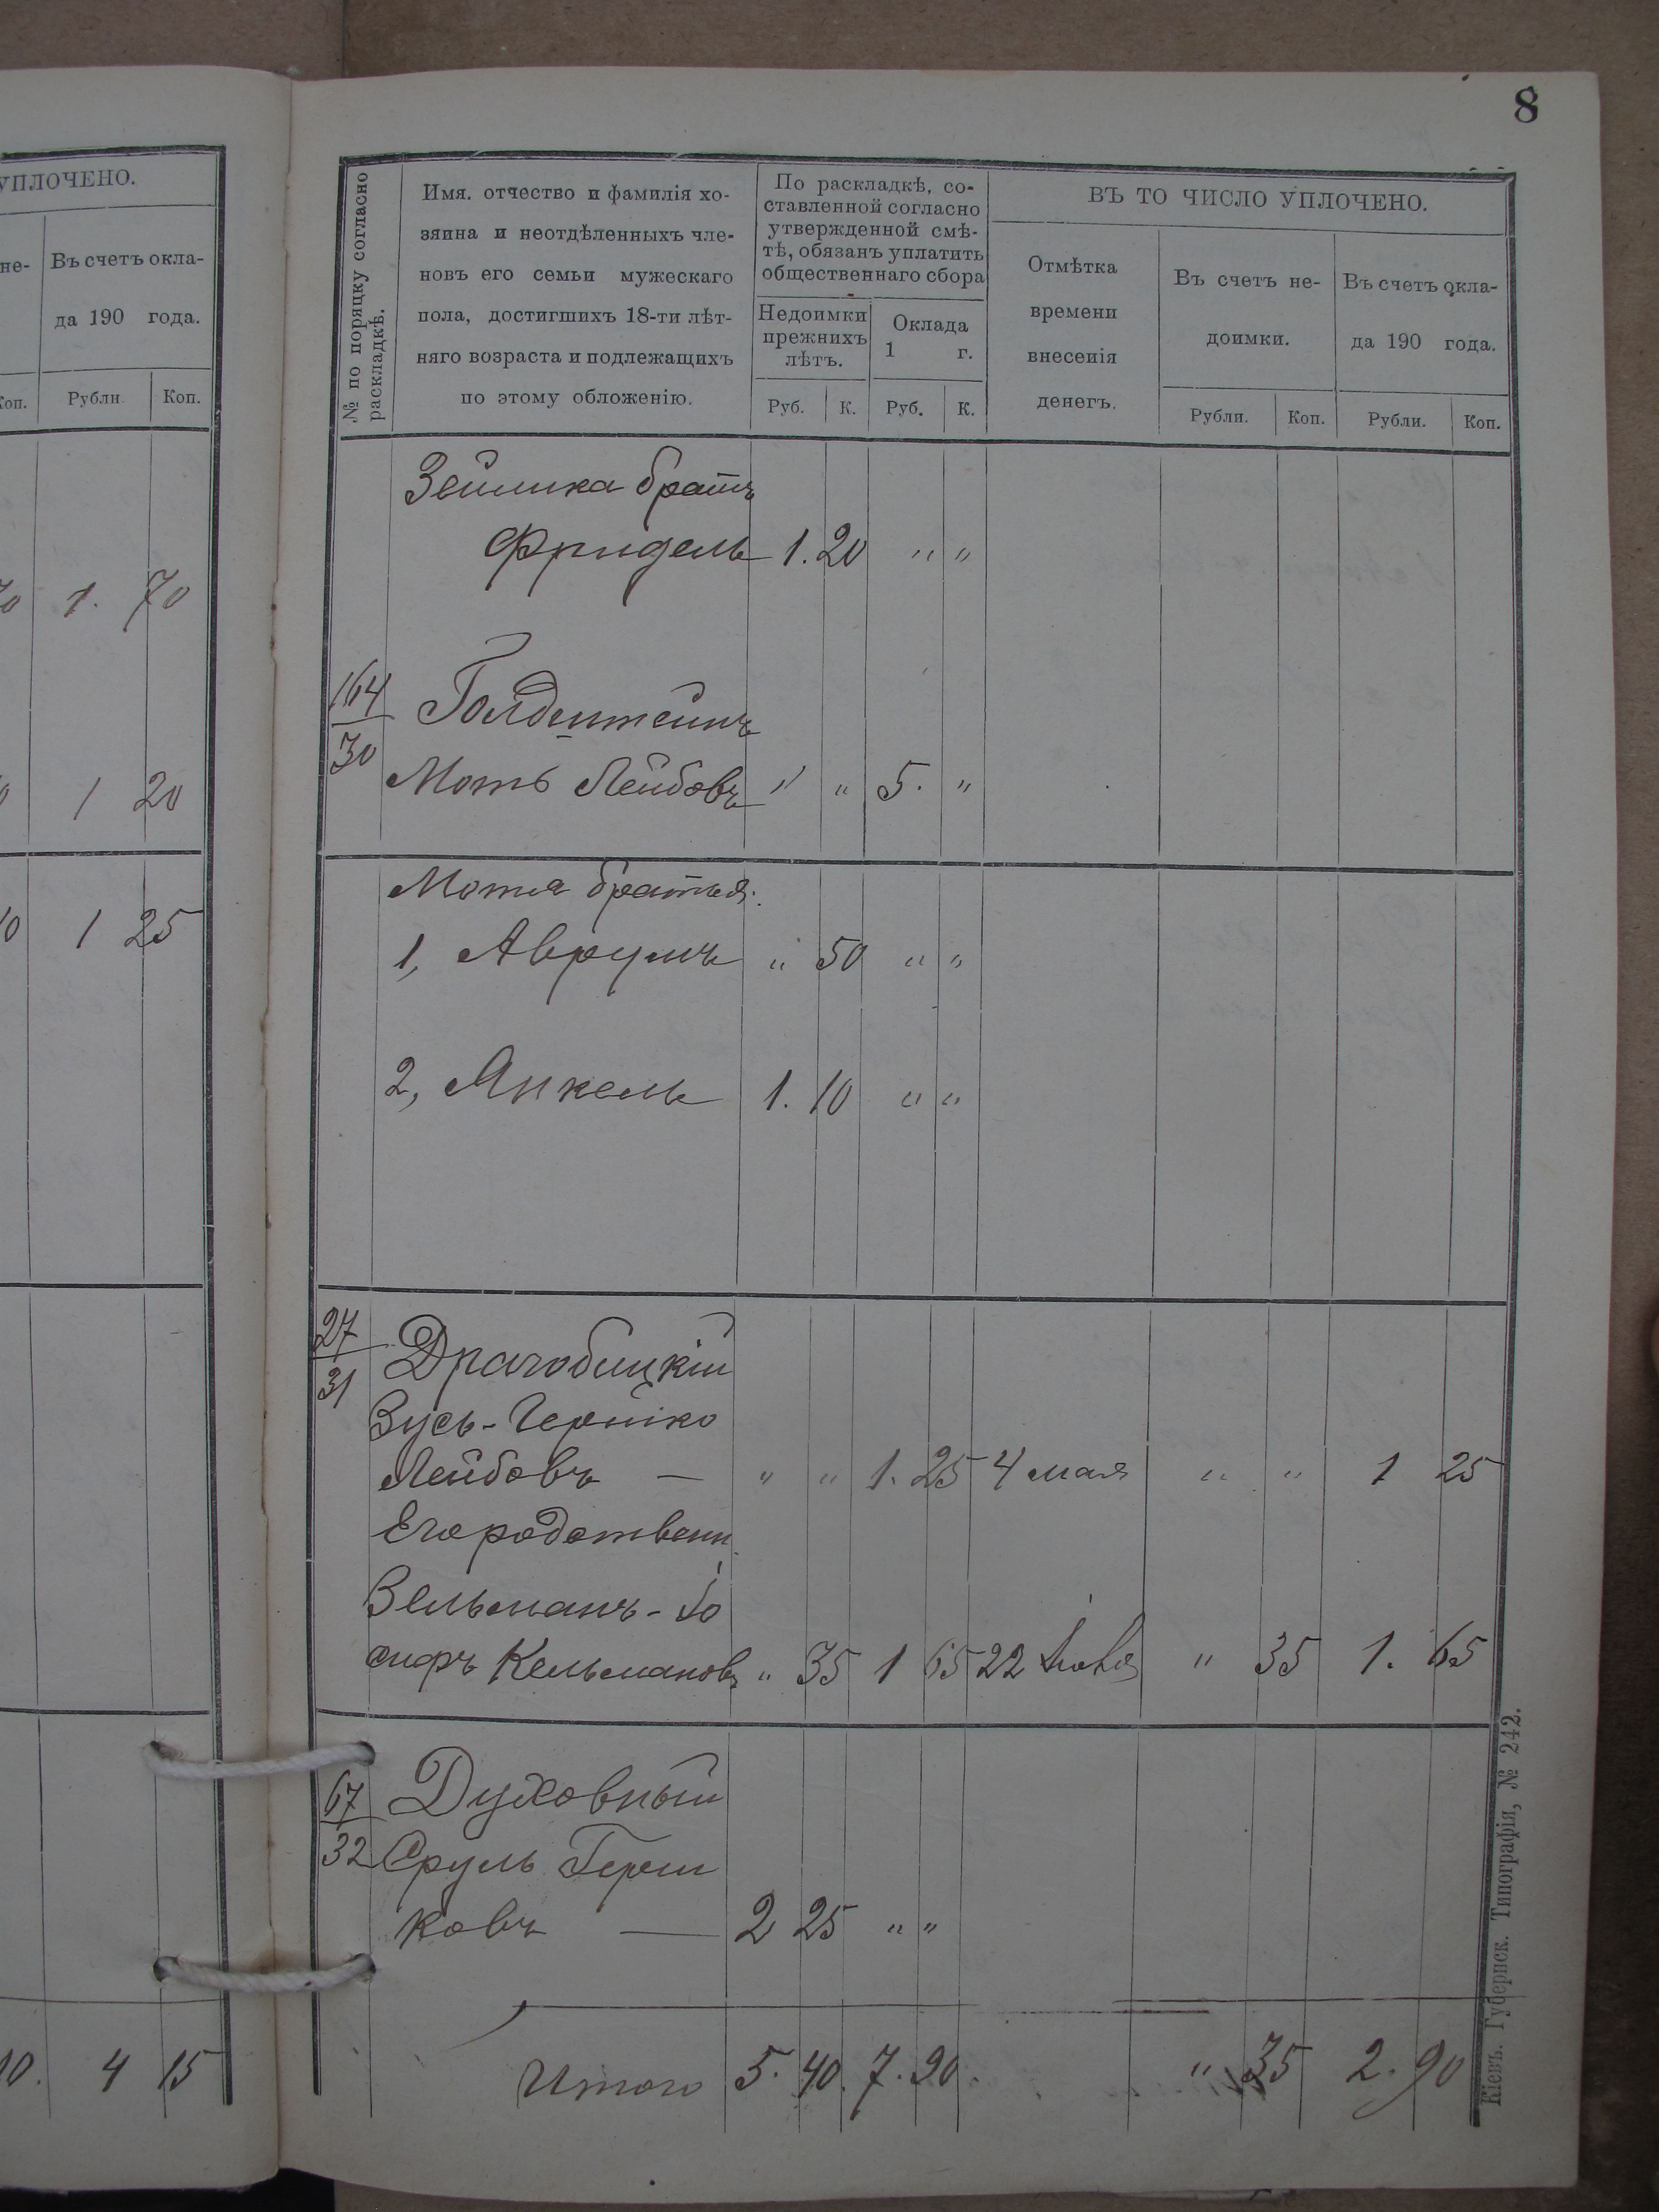 УПЛОЧЕНО.
не-
Въ счетъ окла-
да 190 года.
Коп.
Рубли.
Коп.
70 1. 70
1 20
1 25
10. 4 15
8
№ по порядку согласно
раскладкѣ.
Имя. отчество и фамилія хо-
зяина и неотдѣленныхъ чле-
новъ его семьи мужескаго
пола, достигшихъ 18-ти лѣт-
няго возраста и подлежащихъ
по этому обложенію.
По раскладкѣ, со-
ставленной согласно
утвержденной смѣ-
тѣ, обязанъ уплатить
общественнаго сбора
Недоимки
прежнихъ
лѣтъ.
Оклада
1 г.
Руб. К. Руб. К.
ВЪ ТО ЧИСЛО УПЛОЧЕНО.
Отмѣтка
времени
внесенія
денегъ.
Въ счетъ не-
доимки.
Въ счетъ окла-
да 190 года.
Рубли. Коп. Рубли. Коп.
Зейлика братъ
Фридель 1. 20 " "
164
30
Голдштейнъ
Моть Лейбовъ " " 5. "
Мотя братья:
1, Аврумъ " 50 " "
2, Янкель 1. 10 " "
27
31
Драгобицкій
Зусь-Гершко
Лейбовъ — " " 1. 25 4 мая " " 1 25
Его родственн.
Зельманъ-Іо
сифъ Кельмановъ " 35 1 65 22 " 35 1. 65
67
32
Духовный
Сруль Герш
ковъ — 2 25 " "
Итого 5. 40. 7. 90. " 35 2. 90
Кіевъ. Губернск. Типографія, № 242.